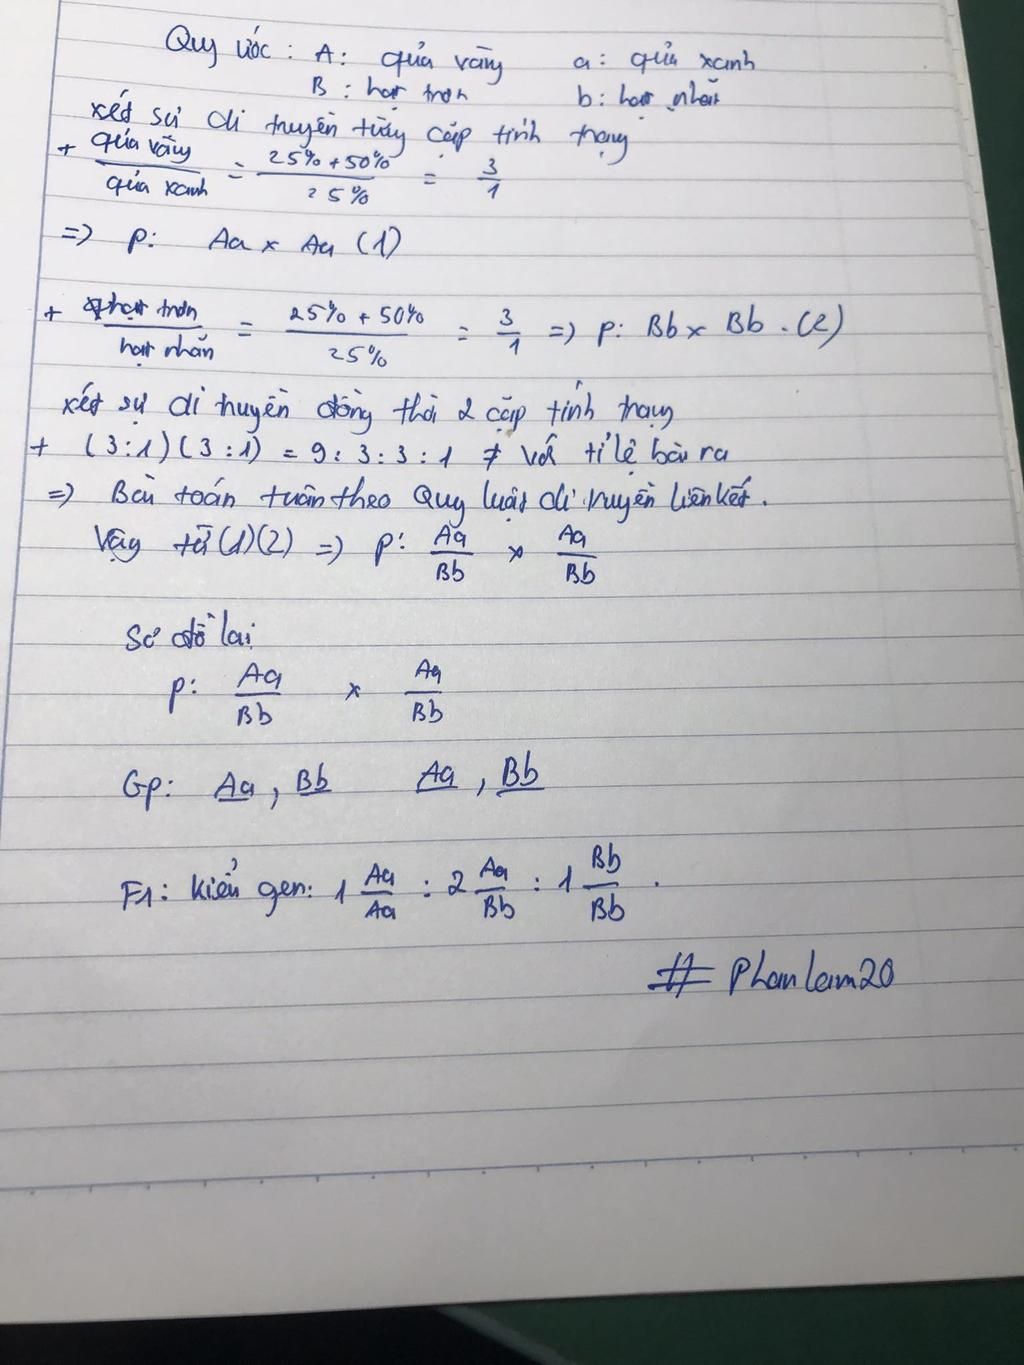 Quy ước: A: quả vàng a: quả xanh
B: hạt trơn b: hạt nhăn
xét sự di truyền từng cặp tính trạng
+ quả vàng / quả xanh = 25% + 50% / 25% = 3/1
=> P: Aa x Aa (1)
+ hạt trơn / hạt nhăn = 25% + 50% / 25% = 3/1 => P: Bb x Bb . (2)
xét sự di truyền đồng thời 2 cặp tính trạng
+ (3:1)(3:1) = 9:3:3:1 ≠ với tỉ lệ bài ra
=> Bài toán tuân theo Quy luật di truyền liên kết.
Vậy từ (1)(2) => P: Aa/Bb x Aa/Bb
Sơ đồ lai
P: Aa/Bb x Aa/Bb
Gp: Aa, Bb Aa, Bb
F1: kiểu gen: 1 Aa/Aa : 2 Aa/Bb : 1 Bb/Bb .
# Phanlam20